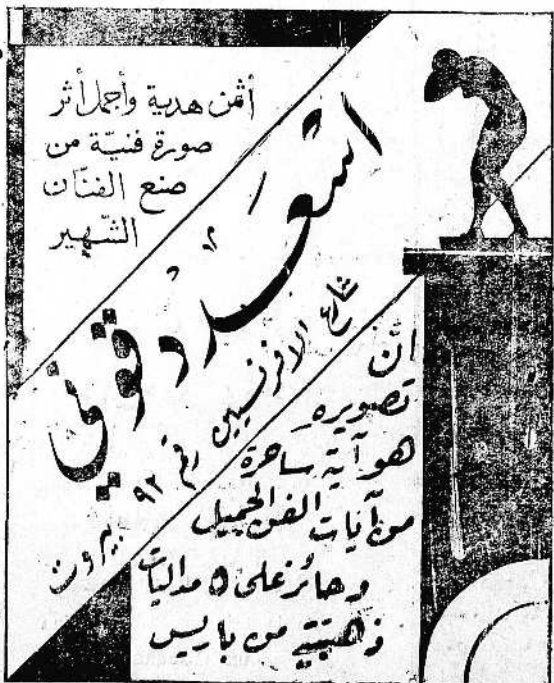 أثمن هدية وأجمل أثر
صورة فنيّة من
صنع الفنّان
الشّهير
اسعد دقوني
شارع الافرنسيين رقم ٩٢ بيروت
انّ
تصويره
هو آية ساحرة
من آيات الفن الجميل
وحائز على ٥ مداليات
ذهبية من باريس